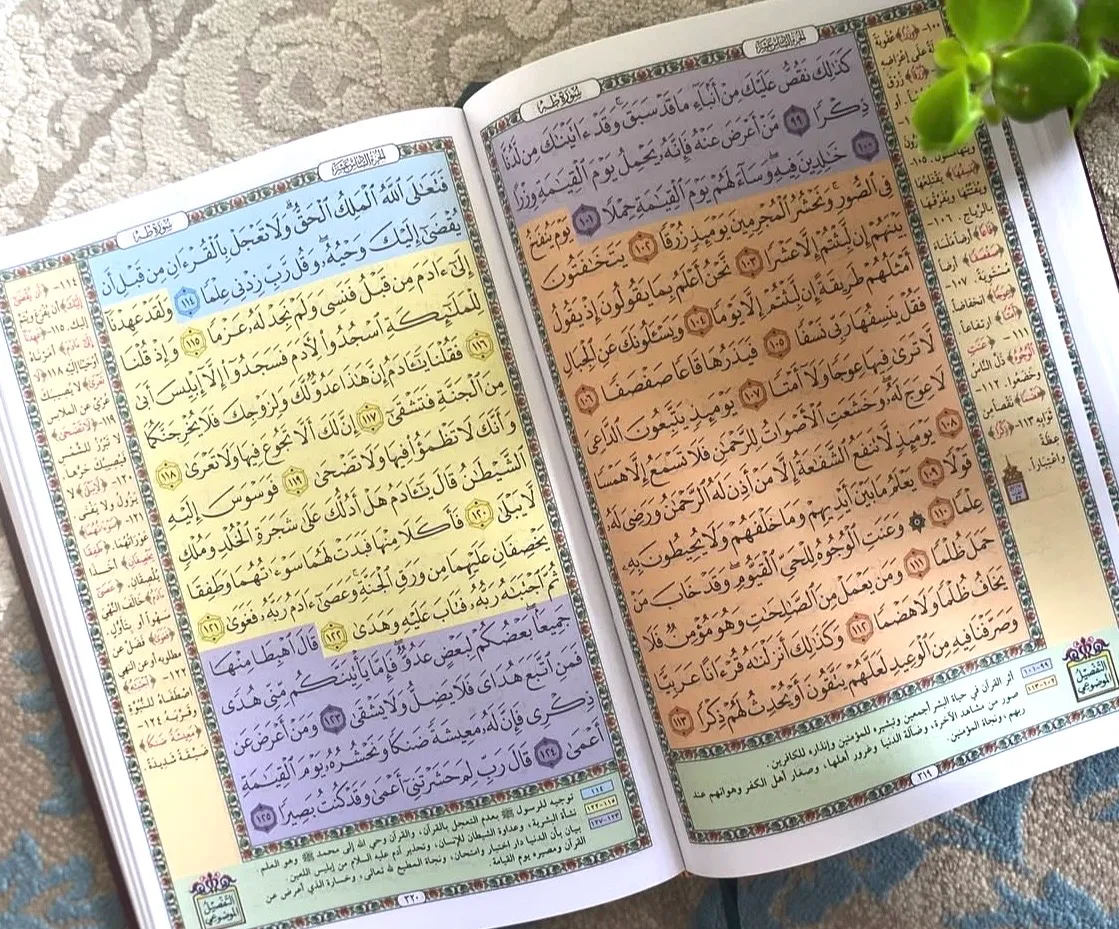 الجزء السادس عشر
سورة طه
كَذَٰلِكَ نَقُصُّ عَلَيْكَ مِنْ أَنۢبَآءِ مَا قَدْ سَبَقَ ۚ وَقَدْ ءَاتَيْنَٰكَ مِن لَّدُنَّا
ذِكْرًا ٩٩ مَّنْ أَعْرَضَ عَنْهُ فَإِنَّهُۥ يَحْمِلُ يَوْمَ ٱلْقِيَٰمَةِ وِزْرًا
١٠٠ خَٰلِدِينَ فِيهِ ۖ وَسَآءَ لَهُمْ يَوْمَ ٱلْقِيَٰمَةِ حِمْلًا ١٠١ يَوْمَ يُنفَخُ
فِى ٱلصُّورِ ۚ وَنَحْشُرُ ٱلْمُجْرِمِينَ يَوْمَئِذٍ زُرْقًا ١٠٢ يَتَخَٰفَتُونَ
بَيْنَهُمْ إِن لَّبِثْتُمْ إِلَّا عَشْرًا ١٠٣ نَّحْنُ أَعْلَمُ بِمَا يَقُولُونَ إِذْ يَقُولُ
أَمْثَلُهُمْ طَرِيقَةً إِن لَّبِثْتُمْ إِلَّا يَوْمًا ١٠٤ وَيَسْـَٔلُونَكَ عَنِ ٱلْجِبَالِ
فَقُلْ يَنسِفُهَا رَبِّى نَسْفًا ١٠٥ فَيَذَرُهَا قَاعًا صَفْصَفًا ١٠٦
لَّا تَرَىٰ فِيهَا عِوَجًا وَلَآ أَمْتًا ١٠٧ يَوْمَئِذٍ يَتَّبِعُونَ ٱلدَّاعِىَ
لَا عِوَجَ لَهُۥ ۖ وَخَشَعَتِ ٱلْأَصْوَاتُ لِلرَّحْمَٰنِ فَلَا تَسْمَعُ إِلَّا هَمْسًا
١٠٨ يَوْمَئِذٍ لَّا تَنفَعُ ٱلشَّفَٰعَةُ إِلَّا مَنْ أَذِنَ لَهُ ٱلرَّحْمَٰنُ وَرَضِىَ لَهُۥ
قَوْلًا ١٠٩ يَعْلَمُ مَا بَيْنَ أَيْدِيهِمْ وَمَا خَلْفَهُمْ وَلَا يُحِيطُونَ بِهِۦ
عِلْمًا ١١٠ ۞ وَعَنَتِ ٱلْوُجُوهُ لِلْحَىِّ ٱلْقَيُّومِ ۖ وَقَدْ خَابَ مَنْ
حَمَلَ ظُلْمًا ١١١ وَمَن يَعْمَلْ مِنَ ٱلصَّٰلِحَٰتِ وَهُوَ مُؤْمِنٌ فَلَا
يَخَافُ ظُلْمًا وَلَا هَضْمًا ١١٢ وَكَذَٰلِكَ أَنزَلْنَٰهُ قُرْءَانًا عَرَبِيًّا
وَصَرَّفْنَا فِيهِ مِنَ ٱلْوَعِيدِ لَعَلَّهُمْ يَتَّقُونَ أَوْ يُحْدِثُ لَهُمْ ذِكْرًا ١١٣
٩٩-١٠١ أثر القرآن في حياة البشر أجمعين وتبشيره للمؤمنين وإنذاره للكافرين.
صور من مشاهد الآخرة، وضآلة الدنيا وغرور أهلها، وصغار أهل الكفر وهوانهم عند
ربهم، ونجاة المؤمنين.
التفصيل الموضوعي
٣١٩
الجزء السادس عشر
سورة طه
فَتَعَٰلَى ٱللَّهُ ٱلْمَلِكُ ٱلْحَقُّ ۗ وَلَا تَعْجَلْ بِٱلْقُرْءَانِ مِن قَبْلِ أَن
يُقْضَىٰٓ إِلَيْكَ وَحْيُهُۥ ۖ وَقُل رَّبِّ زِدْنِى عِلْمًا ١١٤ وَلَقَدْ عَهِدْنَآ
إِلَىٰٓ ءَادَمَ مِن قَبْلُ فَنَسِىَ وَلَمْ نَجِدْ لَهُۥ عَزْمًا ١١٥ وَإِذْ قُلْنَا
لِلْمَلَٰٓئِكَةِ ٱسْجُدُوا۟ لِءَادَمَ فَسَجَدُوٓا۟ إِلَّآ إِبْلِيسَ أَبَىٰ
١١٦ فَقُلْنَا يَٰٓـَٔادَمُ إِنَّ هَٰذَا عَدُوٌّ لَّكَ وَلِزَوْجِكَ فَلَا يُخْرِجَنَّكُمَا
مِنَ ٱلْجَنَّةِ فَتَشْقَىٰٓ ١١٧ إِنَّ لَكَ أَلَّا تَجُوعَ فِيهَا وَلَا تَعْرَىٰ ١١٨
وَأَنَّكَ لَا تَظْمَؤُا۟ فِيهَا وَلَا تَضْحَىٰ ١١٩ فَوَسْوَسَ إِلَيْهِ
ٱلشَّيْطَٰنُ قَالَ يَٰٓـَٔادَمُ هَلْ أَدُلُّكَ عَلَىٰ شَجَرَةِ ٱلْخُلْدِ وَمُلْكٍ
لَّا يَبْلَىٰ ١٢٠ فَأَكَلَا مِنْهَا فَبَدَتْ لَهُمَا سَوْءَٰتُهُمَا وَطَفِقَا
يَخْصِفَانِ عَلَيْهِمَا مِن وَرَقِ ٱلْجَنَّةِ ۚ وَعَصَىٰٓ ءَادَمُ رَبَّهُۥ فَغَوَىٰ ١٢١
ثُمَّ ٱجْتَبَٰهُ رَبُّهُۥ فَتَابَ عَلَيْهِ وَهَدَىٰ ١٢٢ قَالَ ٱهْبِطَا مِنْهَا
جَمِيعًۢا ۖ بَعْضُكُمْ لِبَعْضٍ عَدُوٌّ ۖ فَإِمَّا يَأْتِيَنَّكُم مِّنِّى هُدًى
فَمَنِ ٱتَّبَعَ هُدَاىَ فَلَا يَضِلُّ وَلَا يَشْقَىٰ ١٢٣ وَمَنْ أَعْرَضَ عَن
ذِكْرِى فَإِنَّ لَهُۥ مَعِيشَةً ضَنكًا وَنَحْشُرُهُۥ يَوْمَ ٱلْقِيَٰمَةِ
أَعْمَىٰ ١٢٤ قَالَ رَبِّ لِمَ حَشَرْتَنِىٓ أَعْمَىٰ وَقَدْ كُنتُ بَصِيرًا ١٢٥
١١٤ توجيه للرسول ﷺ بعدم التعجل بالقرآن، والقرآن وحي الله إلى محمد ﷺ وهو العلم.
١١٥-١٢٢ نشأة البشرية، وعداوة الشيطان للإنسان، وتحذير آدم عليه السلام من إبليس اللعين.
١٢٣-١٢٧ بيان بأن الدنيا دار اختبار وامتحان، ونجاة المطيع لله تعالى، وخسارة الذي أعرض عن
القرآن ومصيره يوم القيامة.
التفصيل الموضوعي
٣٢٠